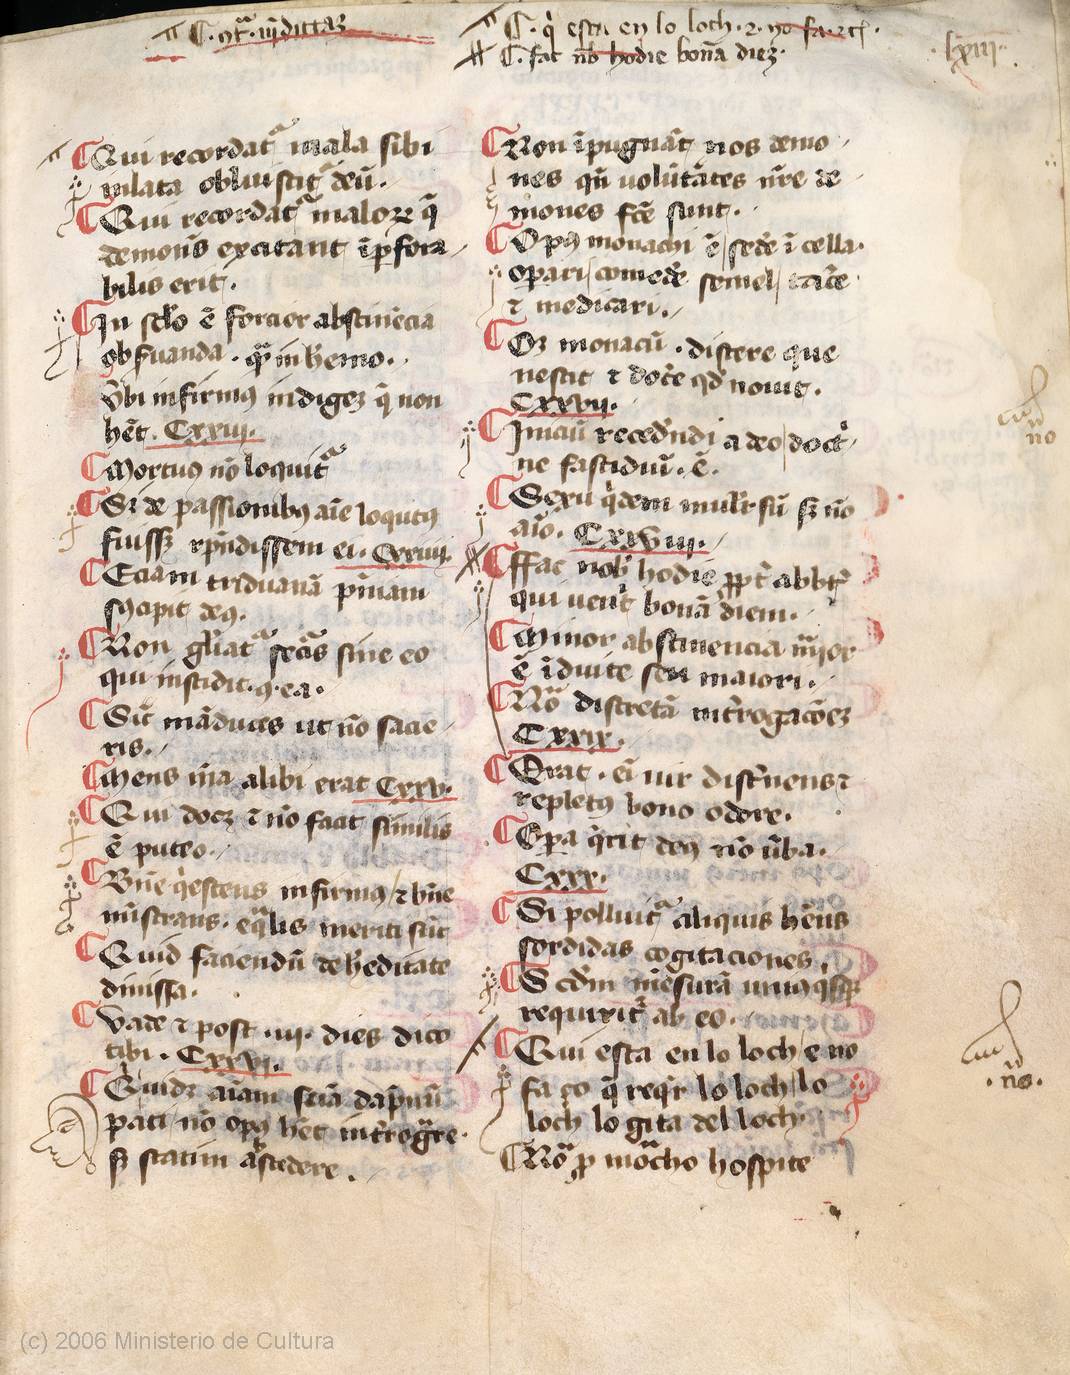 C. q̇ esta en lo loch. 2. no fa. ⁊cͣ.
C. fac nb̄ hodie bonā diez.
. lxiii .
Qui recordatᷓ mala sibi
inlata obliuiscitᷓ deū.
Qui recordatᷓ malorꝝ q̄
demonū excitant īꝑfora-
bilis erit.
In sclo ē forcior abstinēcia
obſuanda . qͣꝫ in heremo.
Vbi infirmꝰ indigeꝫ q̄ non
hēt. Cxxiii.
Mortuꝰ nō loquitᷓ
Si de passionibꝰ aīe loqutꝰ
fuissꝫ rn̄dissem ei. Cxxiiii.
Eciam triduanā pn̄iam
deꝰ.
Non gliatᷓ secᷓs sine eo
qui inscidit. 9. ea.
Sic māduces ut nō sacie-
ris.
Mens mᷓa alibi erat Cxxv.
Qui docꝫ ⁊ nō facit similis
ē puteo.
Bn̄e q̇escens infirmꝰ / ⁊ bn̄e
mīstrans. eqᷓlis meriti sūt
Quid faciendū de hereditate
dimissa.
Vade ⁊ post .iii. dies dico
tibi. Cxxvi.
Quidꝫ aīam suā dāpnū
pati / nō opꝰ hēt int̄rogͣre.
sꝫ statim aᷤcedere.
Non īpugnāt nos demo-
nes qn̄ volūtates nr̄e de-
mones fc̄e sunt.
Opꝰ monachi ē / sedē ī cella.
oꝑari / comedē semel / tacē
⁊ medicari.
Oꝫ monacū . discere que
nescit ⁊ docē qd novit.
Cxxvii.
Iniciū recedēndi a deo / doct̄-
ne fastidiū . ē.
Sexu q̇dem mulr̄ sū sꝫ nō
aīo. Cxxviii.
Ffac nob̄ hodie ꝓpt̄ abbt̄
qui venit bonā diem.
Minor abstinencia mᷓior
ē ī divite seu maiori.
Nᷓo discretā int̄rogacōeꝫ
Cxxix.
Erat . eī vir disc̄nens ⁊
repletꝰ bono odore.
Oꝑa q̇rit deꝰ nō v̄ba.
Cxxx.
Si polluitᷓ aliquis hn̄s
sordidas cogitaciones
S cdm mēsurā uniꝰ
requiritᷓ ab eo.
Qui esta en lo loch / e no
fa ço q̄ reqr̄ lo loch / lo
loch lo gita del loch.
Nᷓo ꝑ moᷓcho hospite
no
nō.
(c) 2006 Ministerio de Cultura